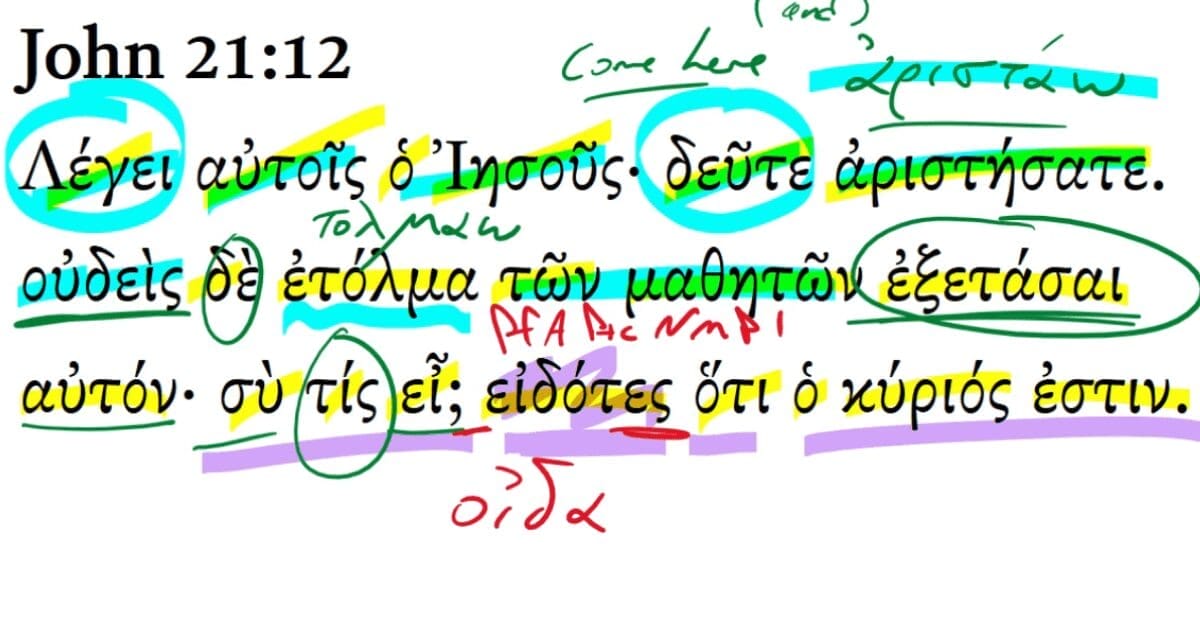 (and)
John 21:12
Come here ἀριστάω
Λέγει αὐτοῖς ὁ Ἰησοῦς· δεῦτε ἀριστήσατε.
τολμαω
οὐδεὶς δὲ ἐτόλμα τῶν μαθητῶν ἐξετάσαι
PfA Ptc NmPl
αὐτόν· σὺ τίς εἶ; εἰδότες ὅτι ὁ κύριός ἐστιν.
οἰδα